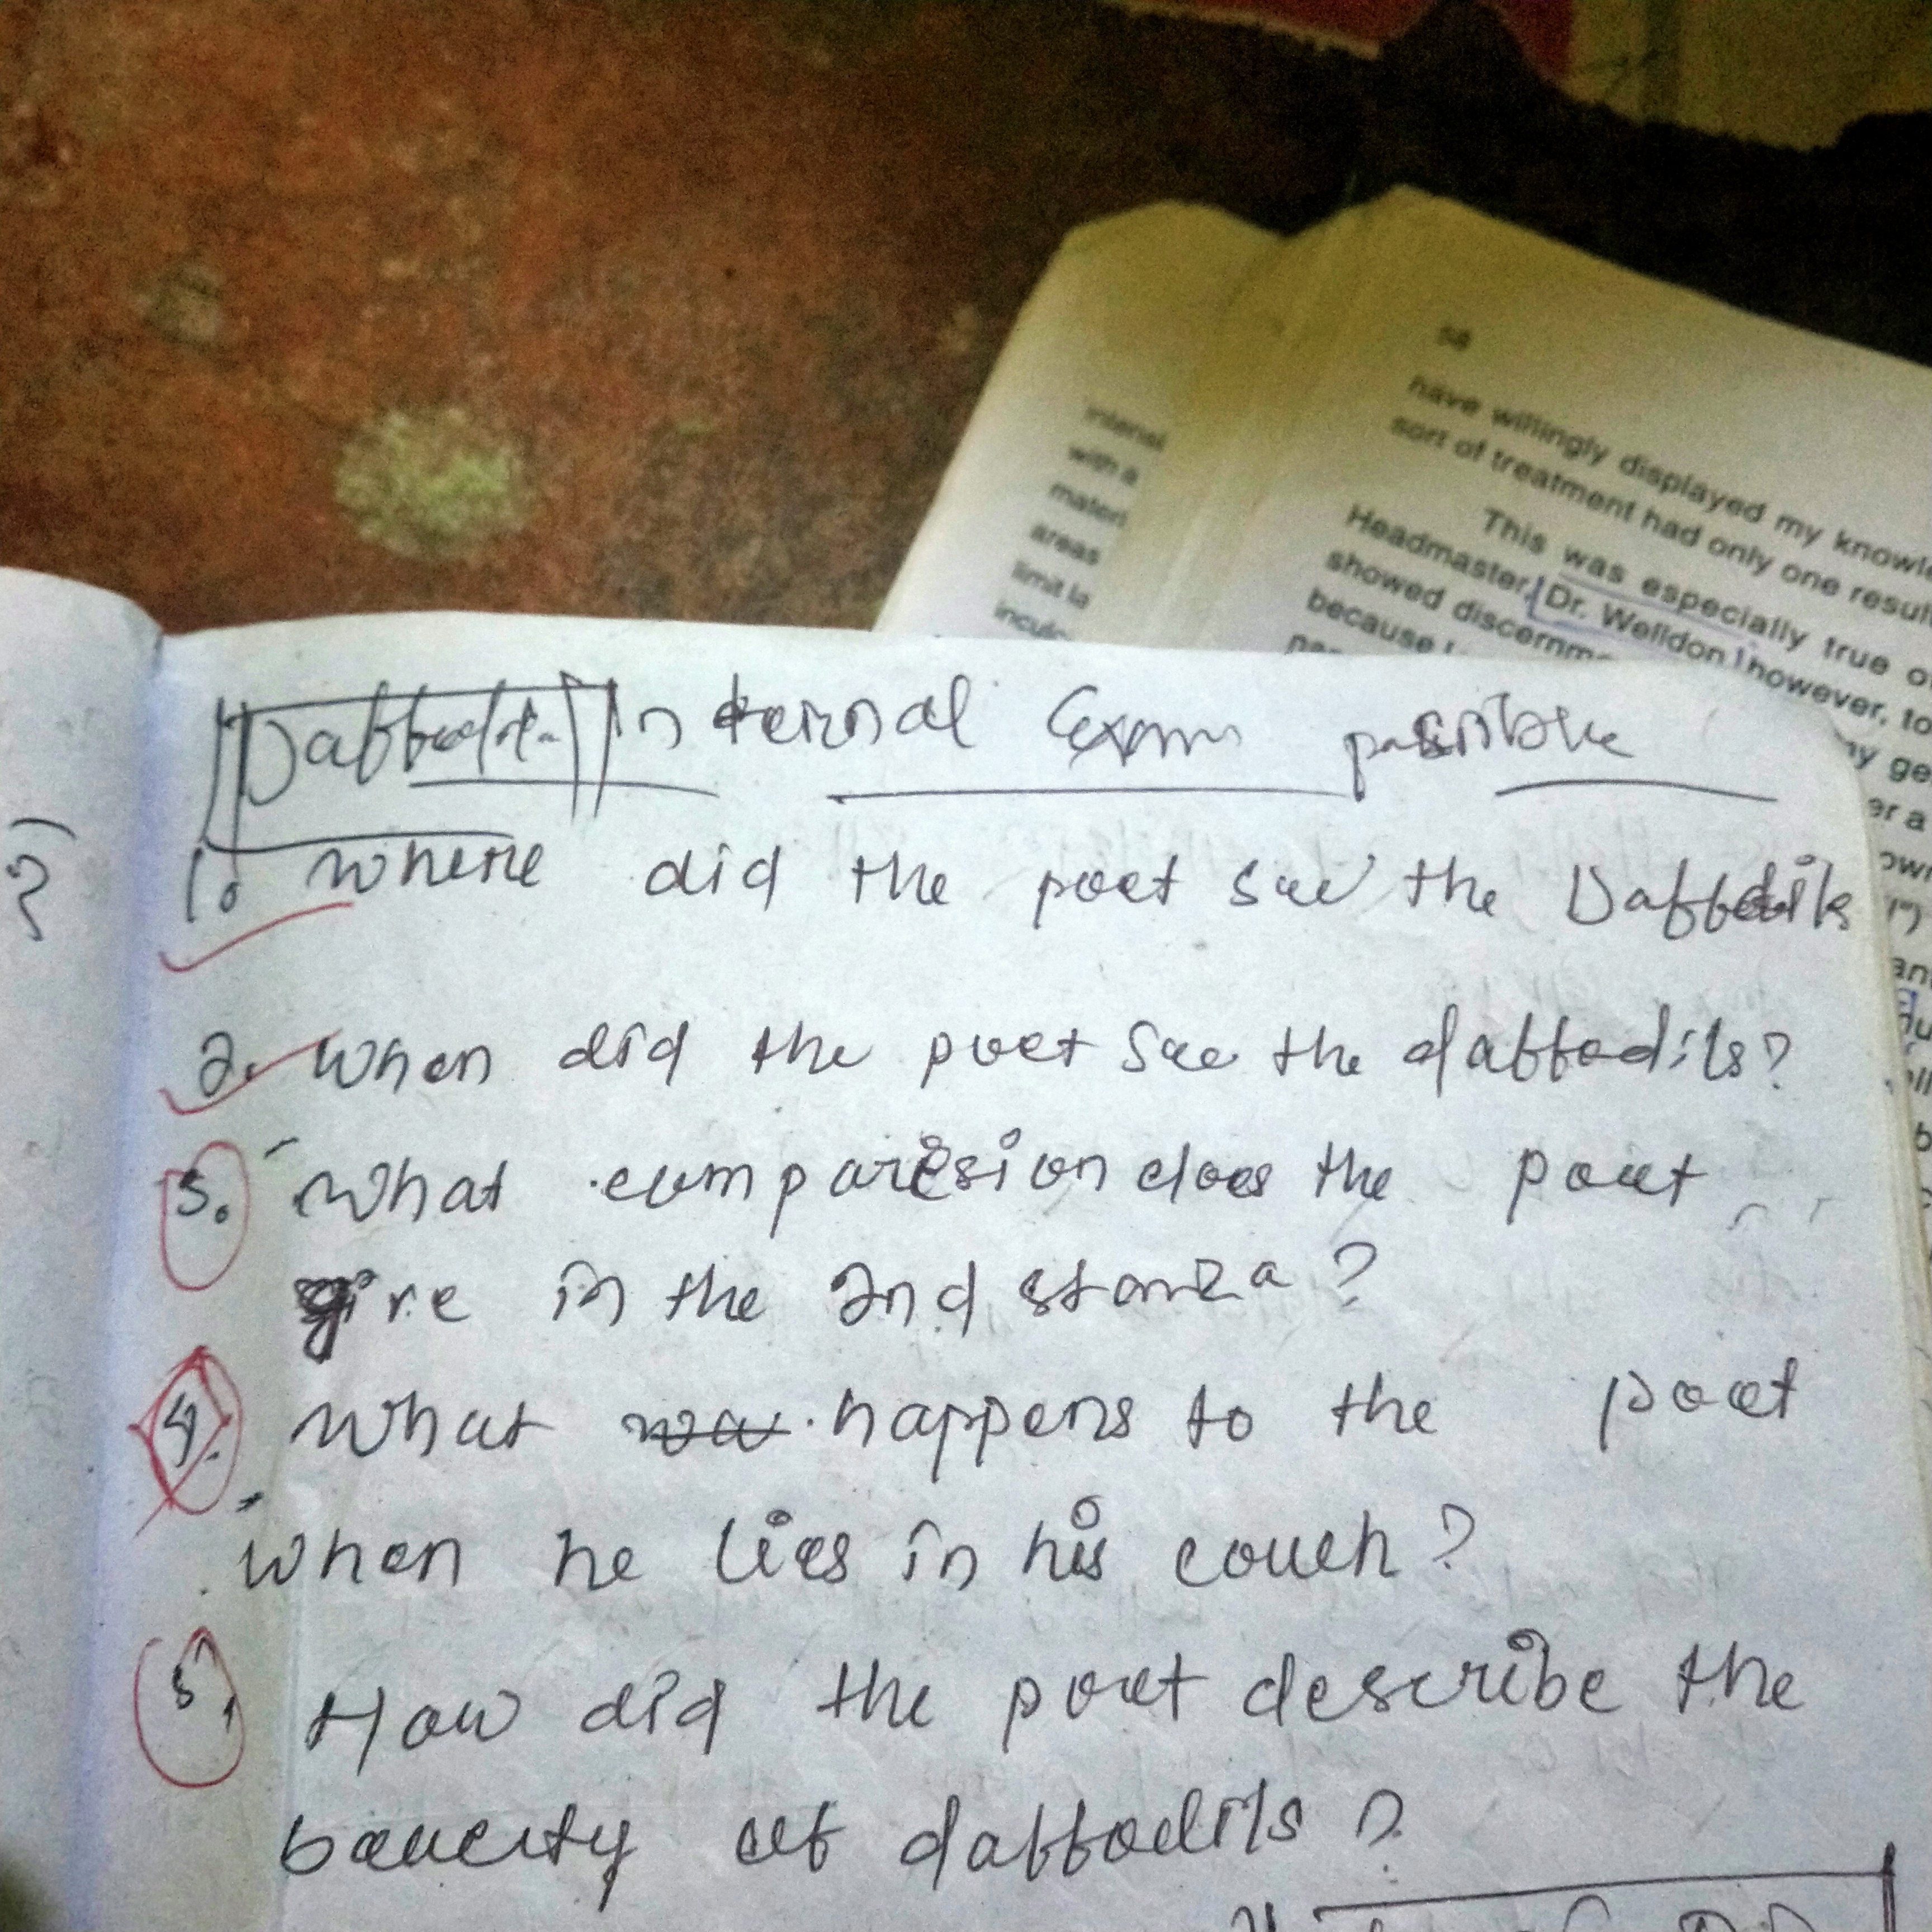 58
have willingly displayed my knowle
sort of treatment had only one result
This was especially true o
Headmaster, Dr. Welldon, however, to
showed discernm
because I
intensi
with a
materi
areas
limit la
inculc
Daffodils Internal Exam possible
1. where did the poet see the Daffodils
2. When did the poet see the daffodils?
3. What comparision does the poet
give in the 2nd stanza?
4. What happens to the poet
When he lies in his couch?
5. How did the poet describe the
beauty of daffodils?